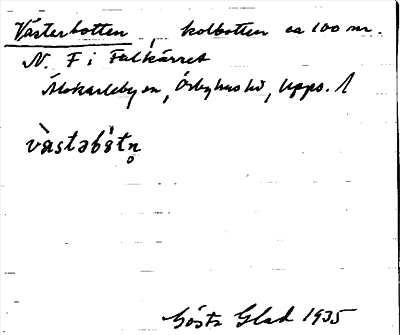 Västerbotten, kolbotten ca 100 m.
N. F i Falkärret
Älvkarleby sn, Örbyhus hd, Upps. l
vàstabåtn̥
Gösta Glad 1935